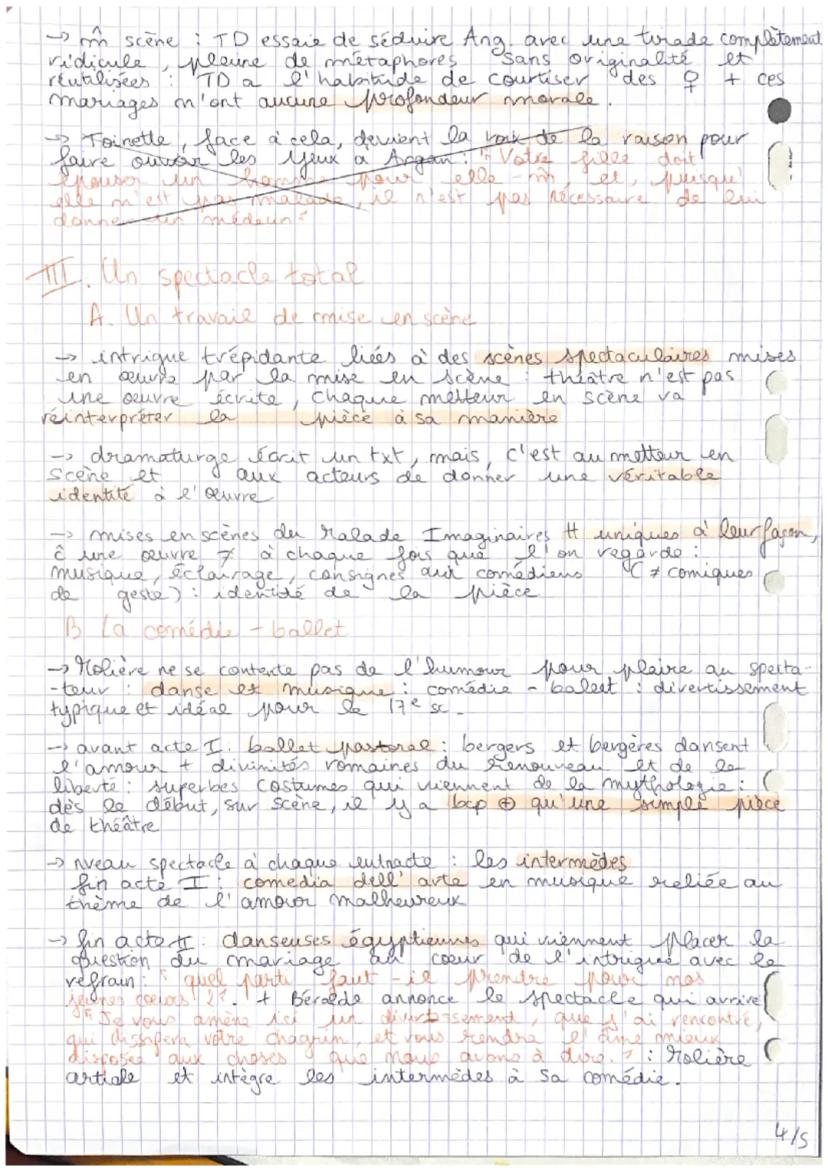 → m̂ scène : TD essaie de séduire Ang. avec une tirade complètement
ridicule, pleine de métaphores sans originalité et
réutilisées : TD a l'habitude de courtiser des ♀ + ces
mariages n'ont aucune profondeur morale.
→ Toinette, face à cela, devient la voix de la raison pour
faire ouvrir les yeux à Argan : "Votre fille doit
épouser un homme pour elle-m̂, et, puisqu'
elle n'est pas malade, il n'est pas nécessaire de lui
donner un médecin"
III. Un spectacle total
A. Un travail de mise en scène
→ intrigue trépidante liées à des scènes spectaculaires mises
en œuvre par la mise en scène : théâtre n'est pas
une œuvre écrite, chaque metteur en scène va
réinterpréter la pièce à sa manière
→ dramaturge écrit un txt, mais, c'est au metteur en
scène et aux acteurs de donner une véritable
identité à l'œuvre
→ mises en scènes du Malade Imaginaires tt uniques à leur façon,
ĉ une œuvre ≠ à chaque fois que l'on regarde :
musique, éclairage, consignes aux comédiens (≠ comiques
de geste) : identité de la pièce
B La comédie-ballet
→ Molière ne se contente pas de l'humour pour plaire au specta-
-teur : danse et musique : comédie-balett : divertissement
typique et idéal pour le 17e sc.
→ avant acte I : ballet pastoral : bergers et bergères dansent
l'amour + divinités romaines du renouveau et de la
liberté : superbes costumes qui viennent de la mythologie :
dès le début, sur scène, il y a bcp ⊕ qu'une simple pièce
de théâtre
→ nveau spectacle à chaque entracte : les intermèdes
fin acte I : comedia dell'arte en musique reliée au
thème de l'amour malheureux
→ fin acte II : danseuses égyptiennes qui viennent placer la
question du mariage au cœur de l'intrigue avec le
refrain : "quel parti faut-il prendre pour nos
jeunes coeurs ?". + Béralde annonce le spectacle qui arrive
"Je vous amène ici un divertissement, que j'ai rencontré,
qui dissipera votre chagrin, et vous rendra l'âme mieux
disposée aux choses que nous avons à dire." : Molière
articule et intègre les intermèdes à sa comédie.
4/5